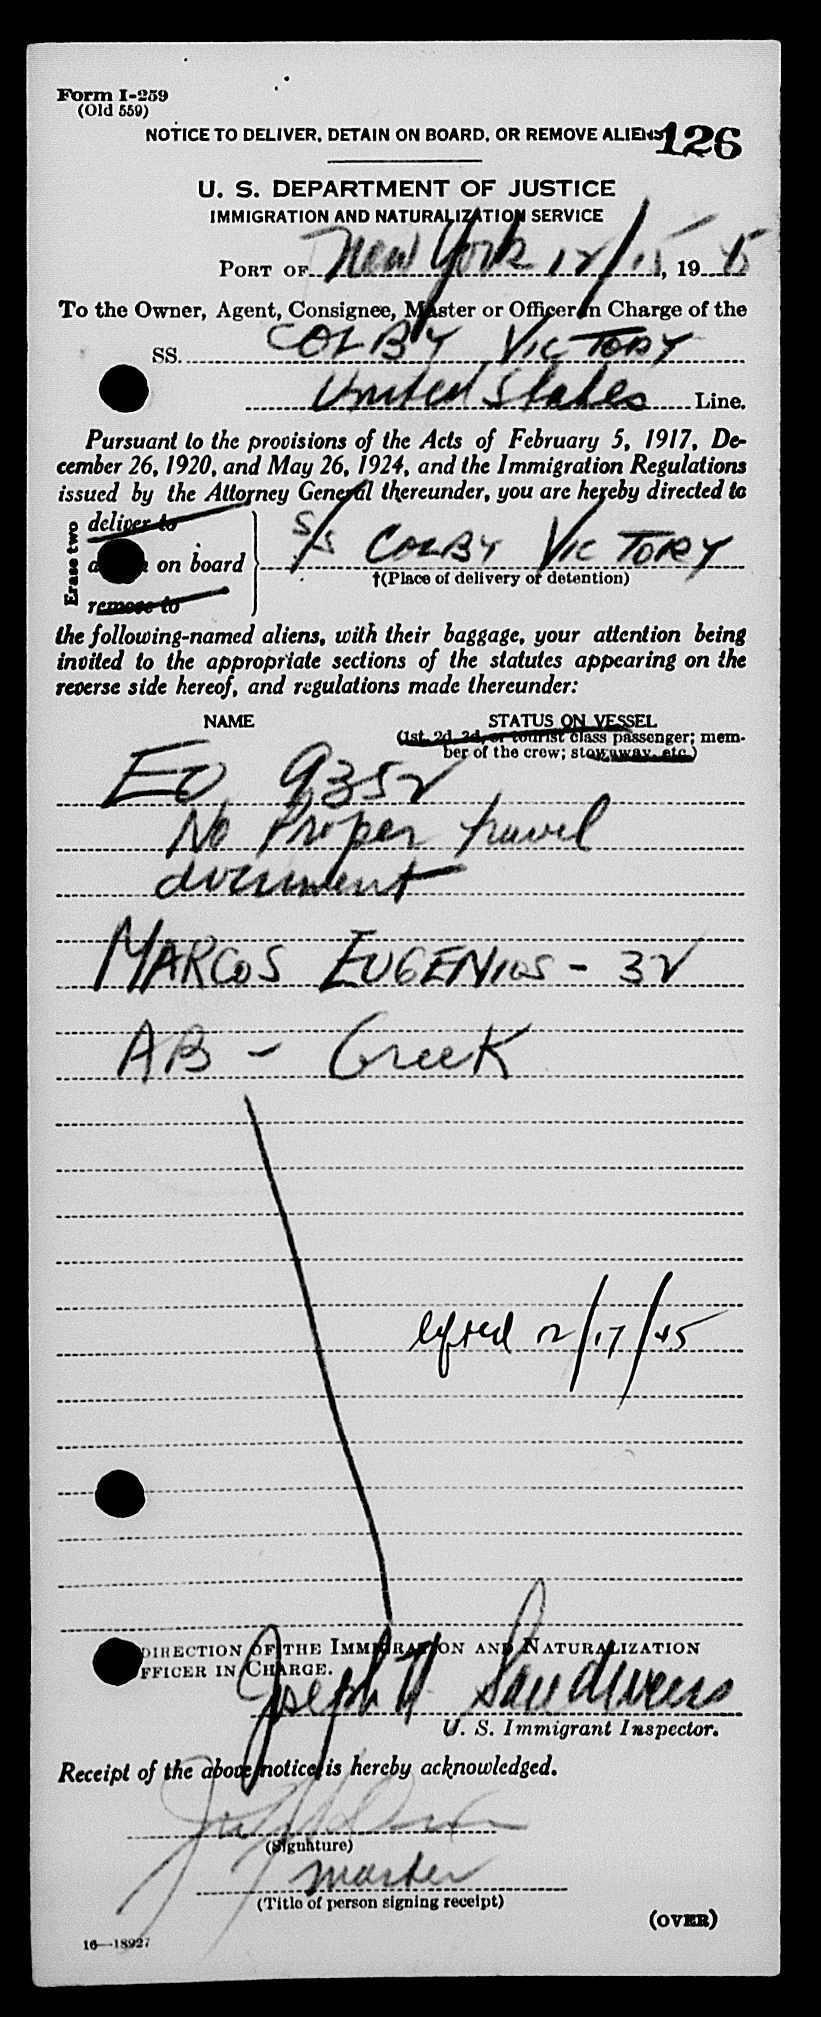 Form I-259
(Old 559)
NOTICE TO DELIVER, DETAIN ON BOARD, OR REMOVE ALIENS 126
U. S. DEPARTMENT OF JUSTICE
IMMIGRATION AND NATURALIZATION SERVICE
PORT OF New York 12/15, 19 45
To the Owner, Agent, Consignee, Master or Officer in Charge of the
SS. COLBY VICTORY
United States Line.
Pursuant to the provisions of the Acts of February 5, 1917, De-
cember 26, 1920, and May 26, 1924, and the Immigration Regulations
issued by the Attorney General thereunder, you are hereby directed to
Erase two
deliver to
on board S/S COLBY VICTORY
†(Place of delivery or detention)
remove to
the following-named aliens, with their baggage, your attention being
invited to the appropriate sections of the statutes appearing on the
reverse side hereof, and regulations made thereunder:
NAME STATUS ON VESSEL
(1st, 2d, 3d, or tourist class passenger; mem-
ber of the crew; stowaway, etc.)
EO 9352
No Proper travel
document
MARCOS EUGENIOS - 32
AB - Greek
12/17/45
DIRECTION OF THE IMMIGRATION AND NATURALIZATION
OFFICER IN CHARGE.
Joseph
U. S. Immigrant Inspector.
Receipt of the above notice is hereby acknowledged.
(Signature)
Master
(Title of person signing receipt)
(OVER)
16—18927